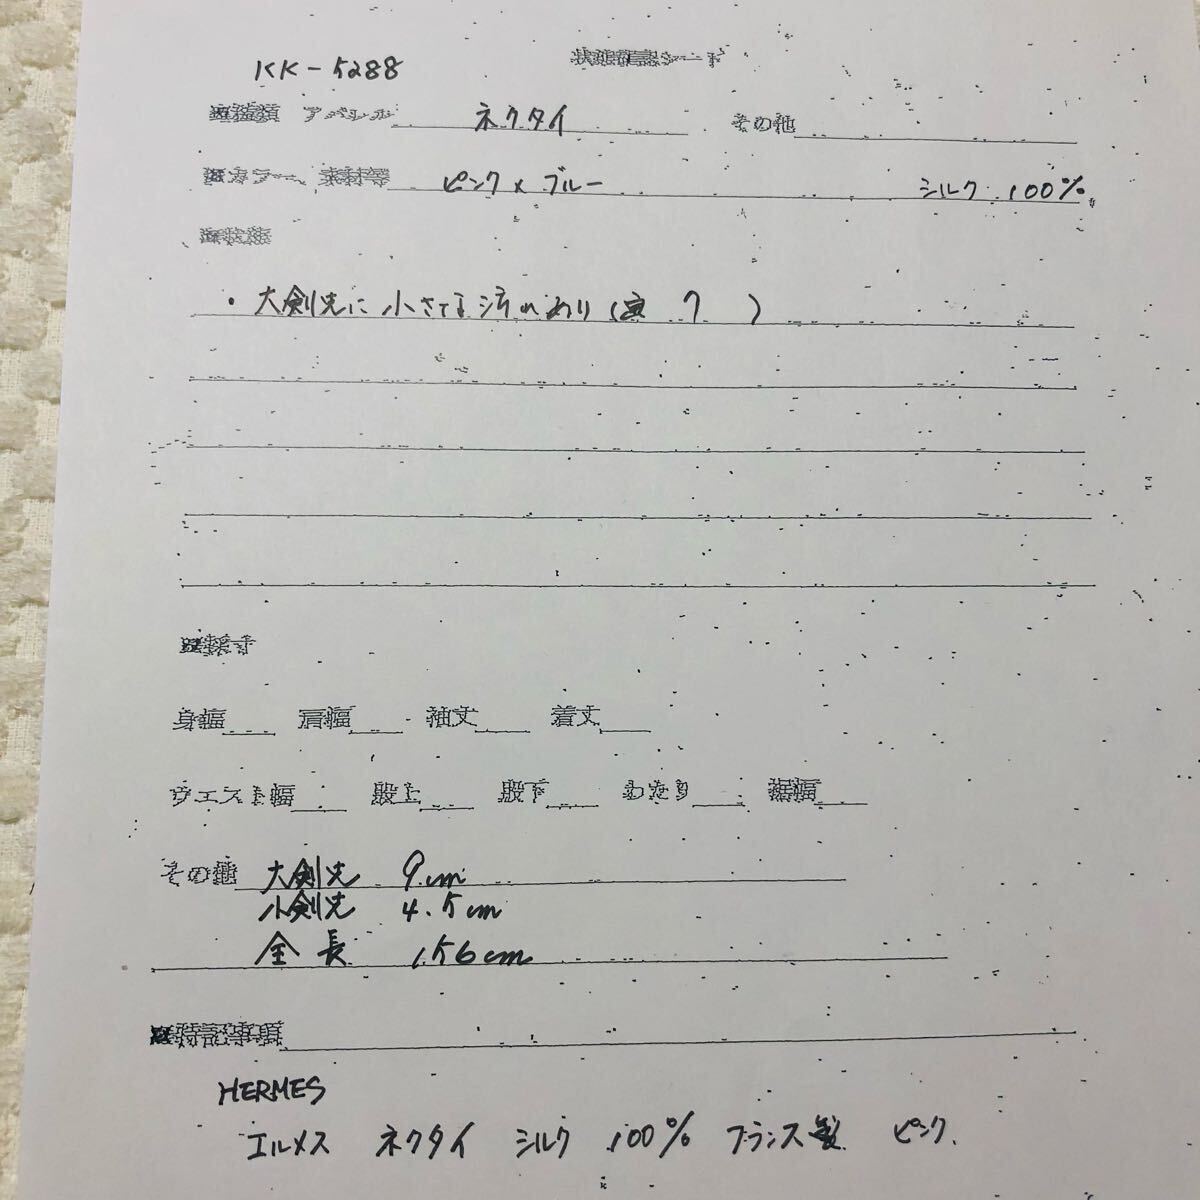 KK-5288
状態確認シート
■種類 アパレル ネクタイ その他
■カラー、素材等 ピンク×ブルー シルク 100%
■状態
・大剣先に小さな汚れあり(写 7 )
■採寸
身幅 肩幅 袖丈 着丈
ウエスト幅 股上 股下 わたり 裾幅
その他 大剣先 9cm
小剣先 4.5cm
全長 156cm
■特記事項
HERMES
エルメス ネクタイ シルク 100% フランス製 ピンク